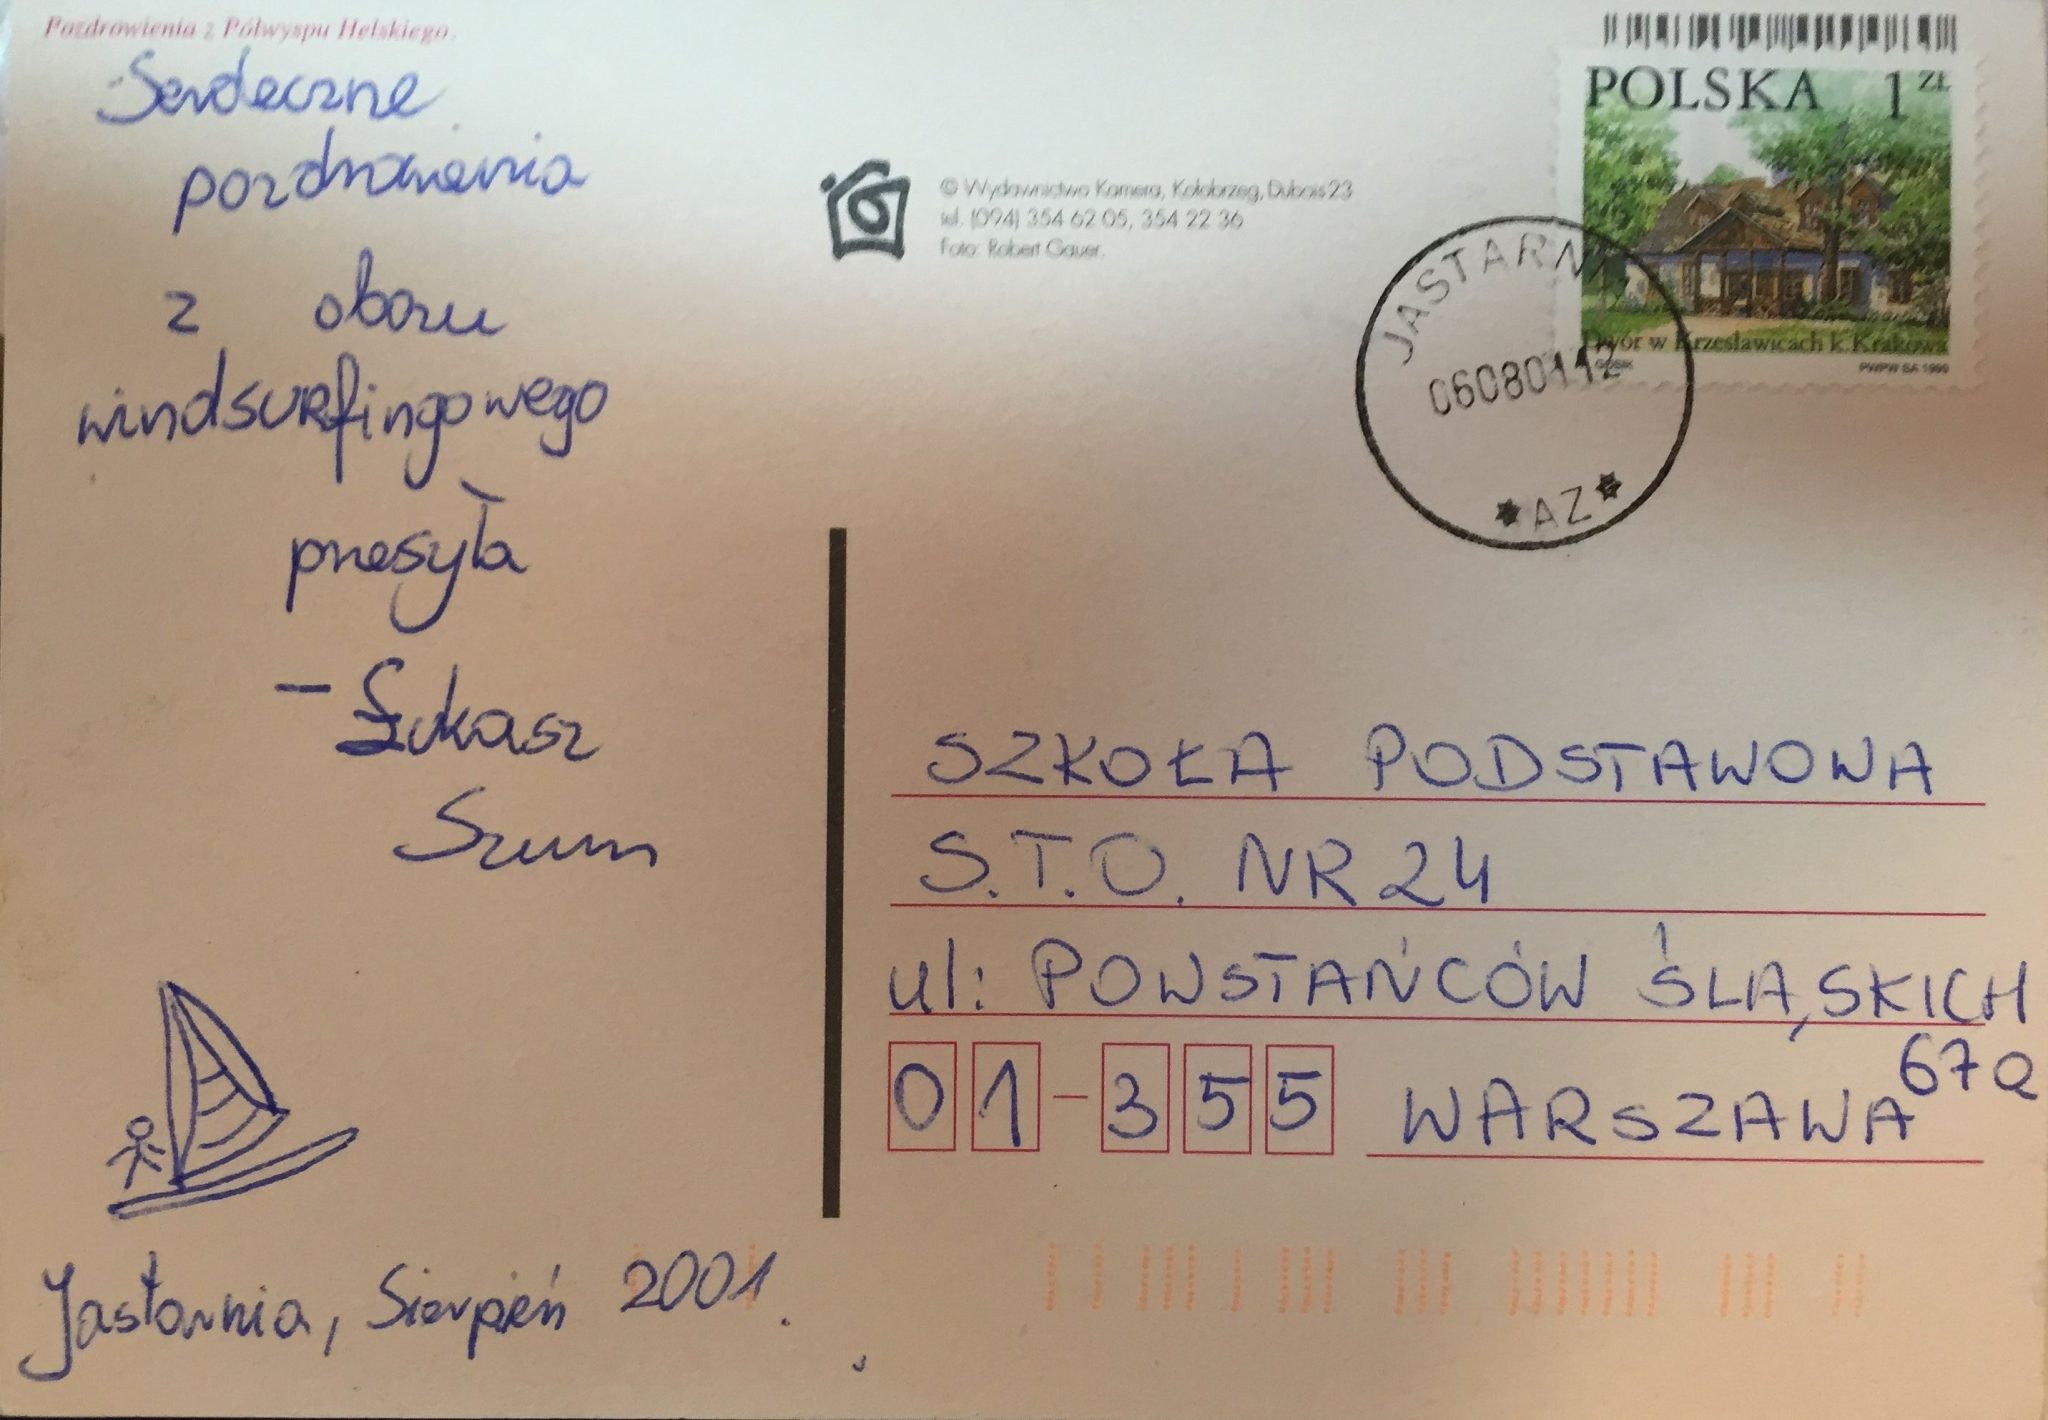 Pozdrowienia z Półwyspu Helskiego.
Serdeczne
pozdrowienia
z obozu
windsurfingowego
przesyła
– Łukasz
Szum
Jastarnia, Sierpień 2001.
© Wydawnictwo Kamera, Kołobrzeg, Dubois 23
tel. (094) 354 62 05, 354 22 36
Foto: Robert Gauer.
POLSKA 1 ZŁ
Dwór w Krzesławicach k. Krakowa
PWPW SA 1999
JASTARNI
060801 12
*AZ*
SZKOŁA PODSTAWOWA
S.T.O. NR 24
ul: POWSTAŃCÓW ŚLĄSKICH
67a
01-355 WARSZAWA